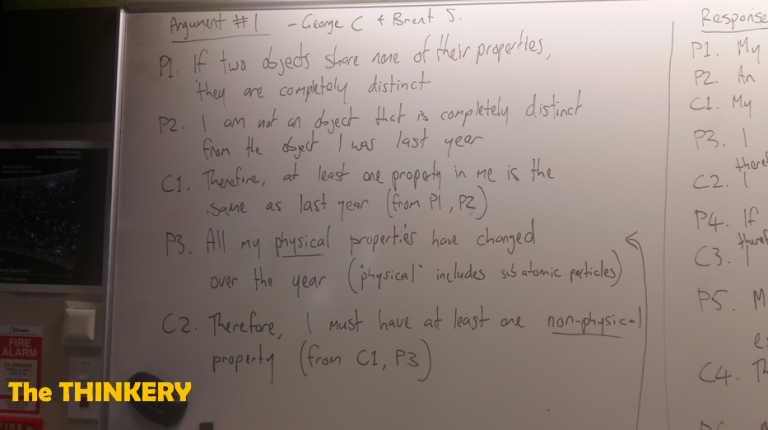 Argument #1 - George C & Brent S.
P1. If two objects share none of their properties,
they are completely distinct
P2. I am not an object that is completely distinct
from the object I was last year
C1. Therefore, at least one property in me is the
same as last year (from P1, P2)
P3. All my physical properties have changed
over the year ("physical" includes subatomic particles)
C2. Therefore, I must have at least one non-physical
property (from C1, P3)
Response
P1. My
P2. An
C1. My
P3. I
C2.
P4. If
C3.
P5. M
C4. Th
FIRE
ALARM
The THINKERY